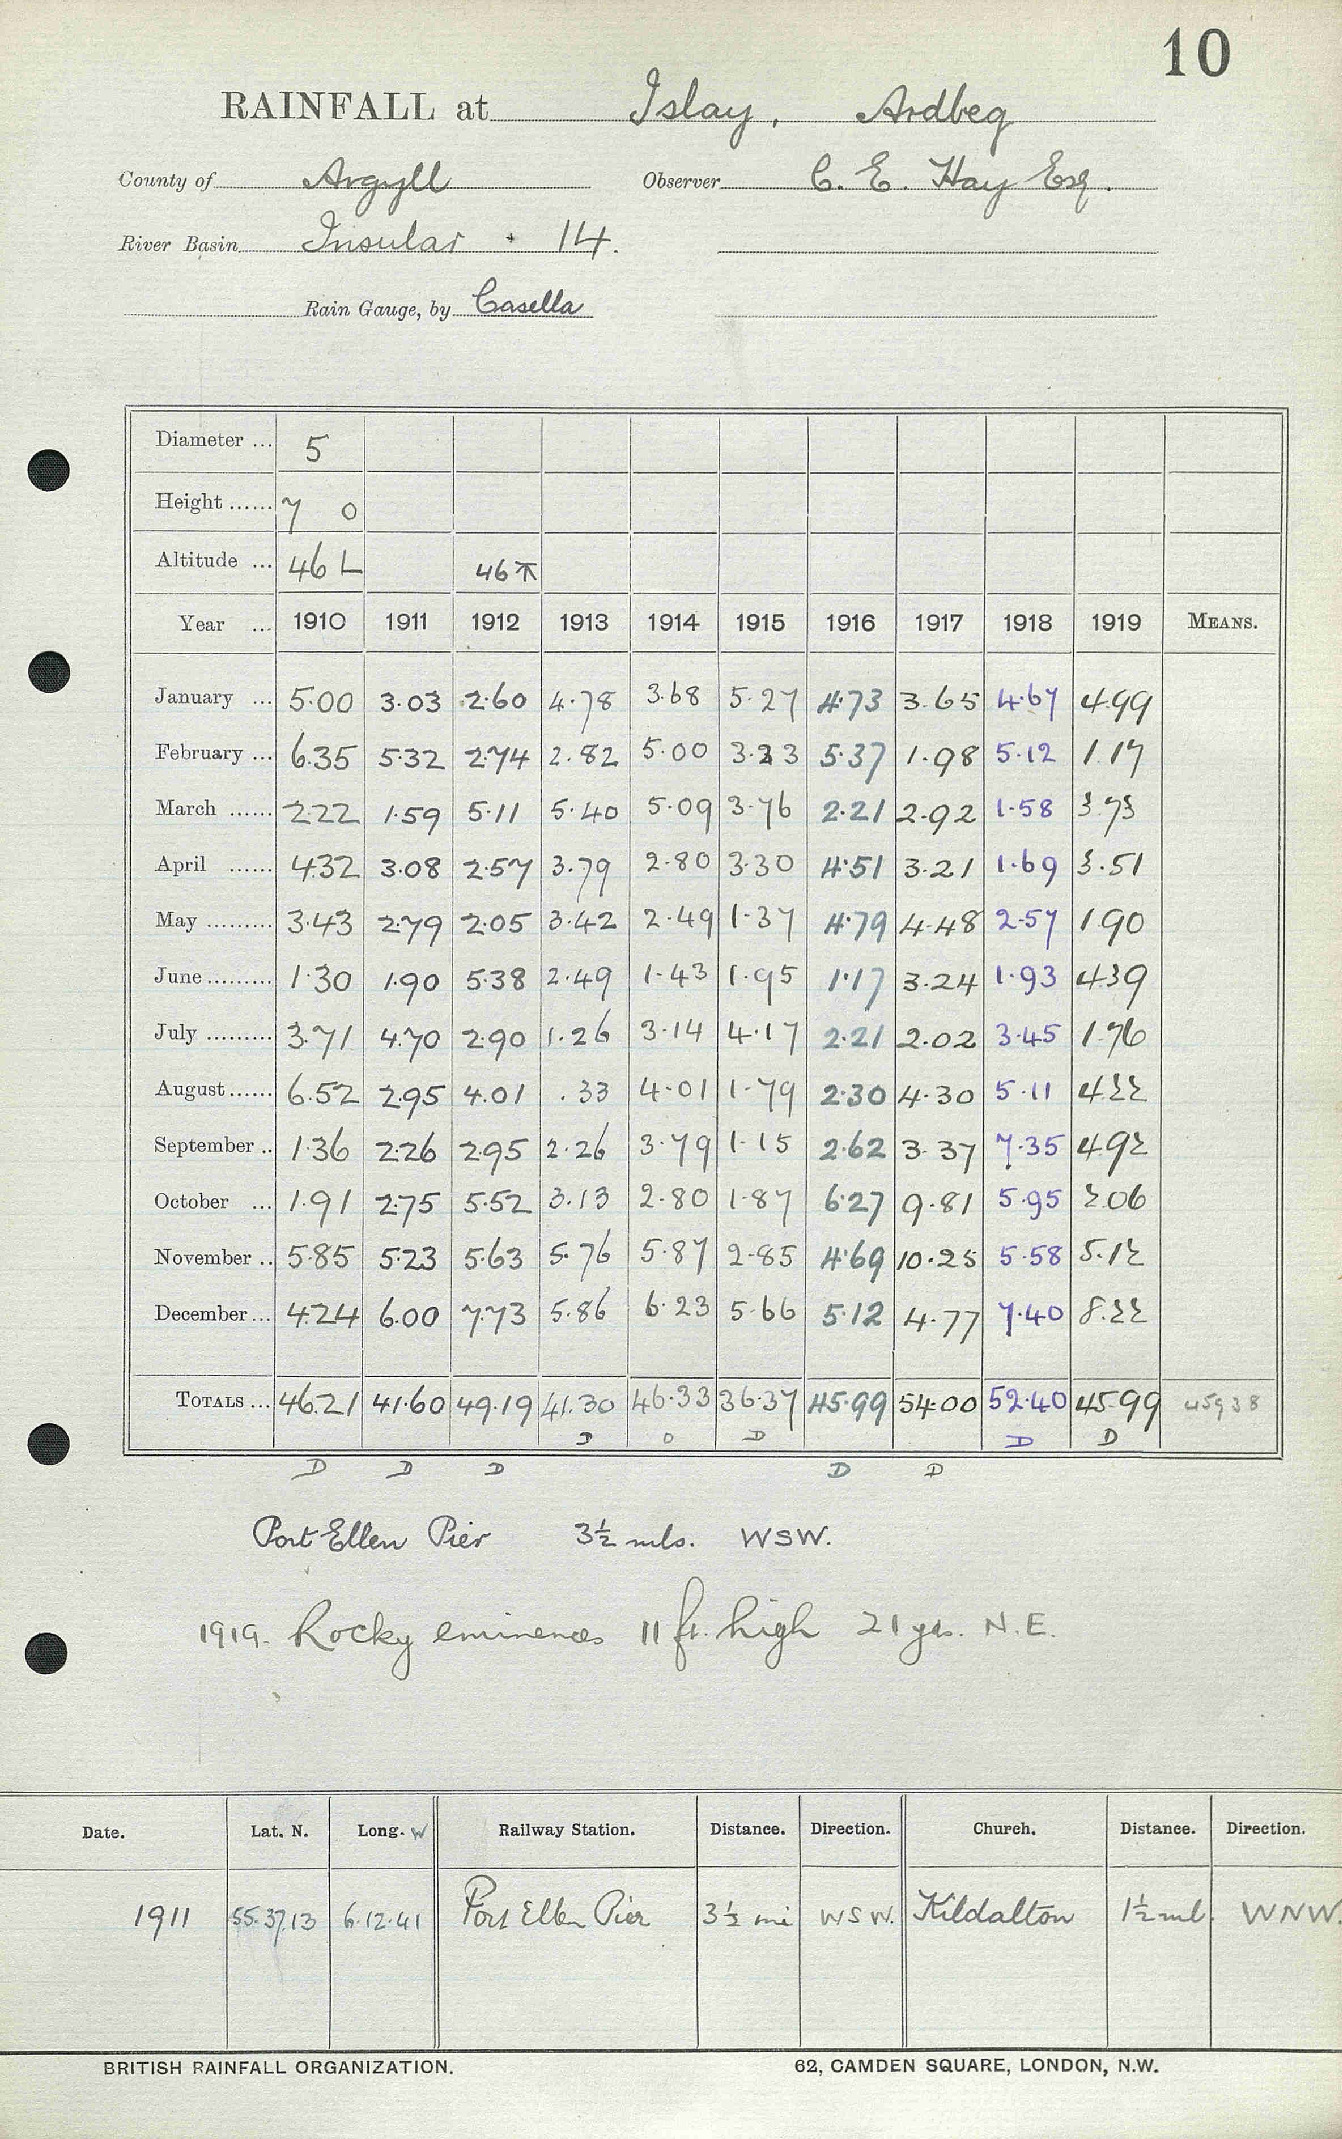 10
RAINFALL at Islay, Ardbeg
County of Argyll Observer C. E. Hay Esq.
River Basin Insular · 14.
Rain Gauge, by Casella
Diameter ... 5
Height ...... 7 0
Altitude ... 46 L 46 ⊼
Year ... 1910 1911 1912 1913 1914 1915 1916 1917 1918 1919 MEANS.
January ... 5.00 3.03 2.60 4.78 3.68 5.27 4.73 3.65 4.67 4.99
February ... 6.35 5.32 2.74 2.82 5.00 3.23 5.37 1.98 5.12 1.17
March ...... 2.22 1.59 5.11 5.40 5.09 3.76 2.21 2.92 1.58 3.73
April ...... 4.32 3.08 2.57 3.79 2.80 3.30 4.51 3.21 1.69 3.51
May ......... 3.43 2.79 2.05 3.42 2.49 1.37 4.79 4.48 2.57 1.90
June ......... 1.30 1.90 5.38 2.49 1.43 1.95 1.17 3.24 1.93 4.39
July ......... 3.71 4.70 2.90 1.26 3.14 4.17 2.21 2.02 3.45 1.76
August ...... 6.52 2.95 4.01 .33 4.01 1.79 2.30 4.30 5.11 4.22
September .. 1.36 2.26 2.95 2.26 3.79 1.15 2.62 3.37 7.35 4.92
October ... 1.91 2.75 5.52 3.13 2.80 1.87 6.27 9.81 5.95 2.06
November .. 5.85 5.23 5.63 5.76 5.87 2.85 4.69 10.25 5.58 5.12
December ... 4.24 6.00 7.73 5.86 6.23 5.66 5.12 4.77 7.40 8.22
TOTALS ... 46.21 41.60 49.19 41.30 46.33 36.37 45.99 54.00 52.40 45.99 45938
D D D D D
D D D D D
Port Ellen Pier 3½ mls. WSW.
1919. Rocky eminences 11 ft. high 21 yds. N.E.
Date. Lat. N. Long. W Railway Station. Distance. Direction. Church. Distance. Direction.
1911 55.37.13 6.12.41 Port Ellen Pier 3½ mi WSW. Kildalton 1½ ml. WNW.
BRITISH RAINFALL ORGANIZATION. 62, CAMDEN SQUARE, LONDON, N.W.